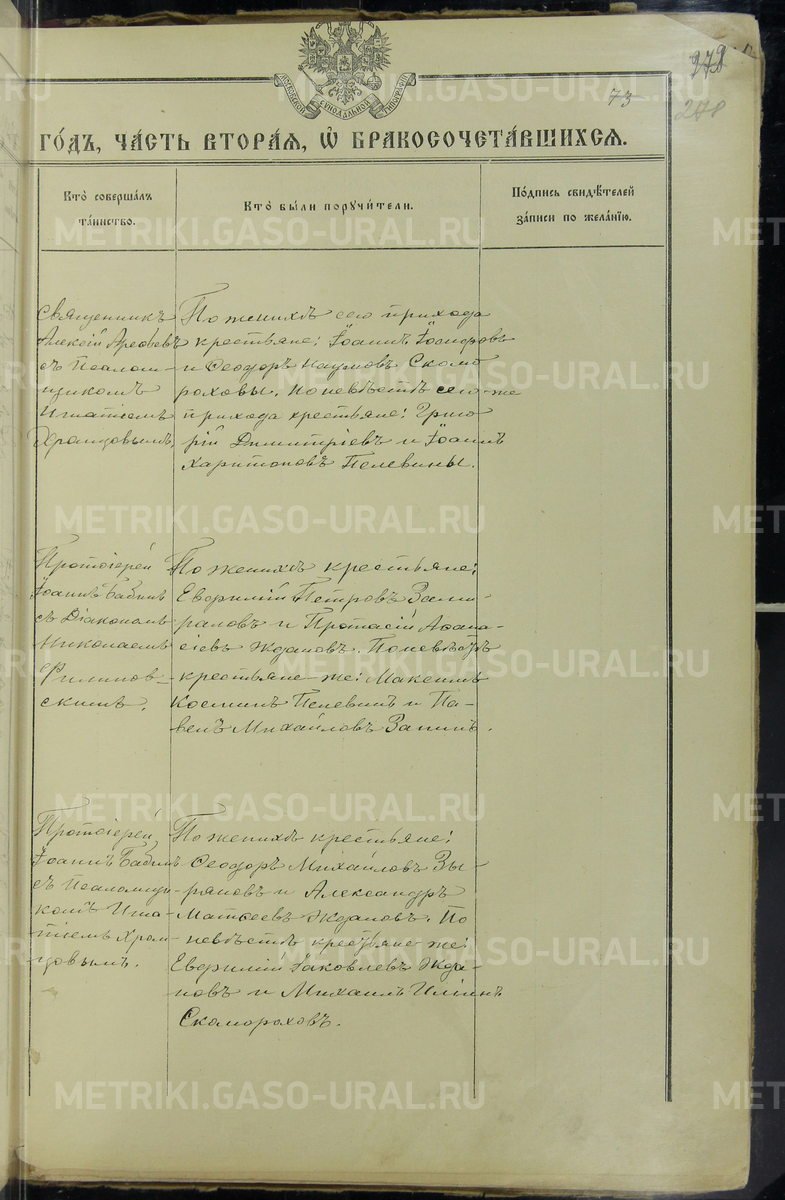 73
278
МОСКОВСКОЙ СУНОДАЛЬНОЙ ТИПОГРАФІИ
ГО́ДЪ, ЧА́СТЬ ВТОРА́Я, Ѡ҆ БРАКОСОЧЕТА́ВШИХСЯ.
Кто̀ соверша́лъ
та́инство.
Кто̀ бы́ли порꙋчи́тели.
По́дпись свидѣ́телей
за́писи по жела́нїю.
Священникъ
Алексій Арефьевъ
съ Псалом-
щикомъ
Игнатіемъ
Храмцовымъ.
По женихѣ сего прихода
крестьяне: Іоаннъ Іосифовъ
и Ѳеодоръ Наумовъ Скомо
роховы. По невѣстѣ сего же
прихода крестьяне: Григо
рій Димитріевъ и Іоаннъ
Харитоновъ Пелевины.
Протоіерей
Іоаннъ Бабинъ
съ Діакономъ
Николаемъ
Филинов-
скимъ.
По женихѣ крестьяне:
Евфимій Петровъ Зами-
раловъ и Протасій Аѳана
сіевъ Ждановъ. По невѣстѣ
крестьяне же: Максимъ
Космин Пелевинъ и Па-
велъ Михайловъ Запинъ.
Протоіерей
Іоаннъ Бабинъ
съ Псаломщи-
комъ Игна-
тіемъ Храм-
цовымъ.
По женихѣ крестьяне:
Ѳеодоръ Михайловъ Зы-
ряновъ и Александръ
Матѳеевъ Ждановъ. По
невѣстѣ крестьяне же:
Евфимій Іаковлевъ Жда-
новъ и Михаилъ Иліинъ
Скомороховъ.
METRIKI.GASO-URAL.RU